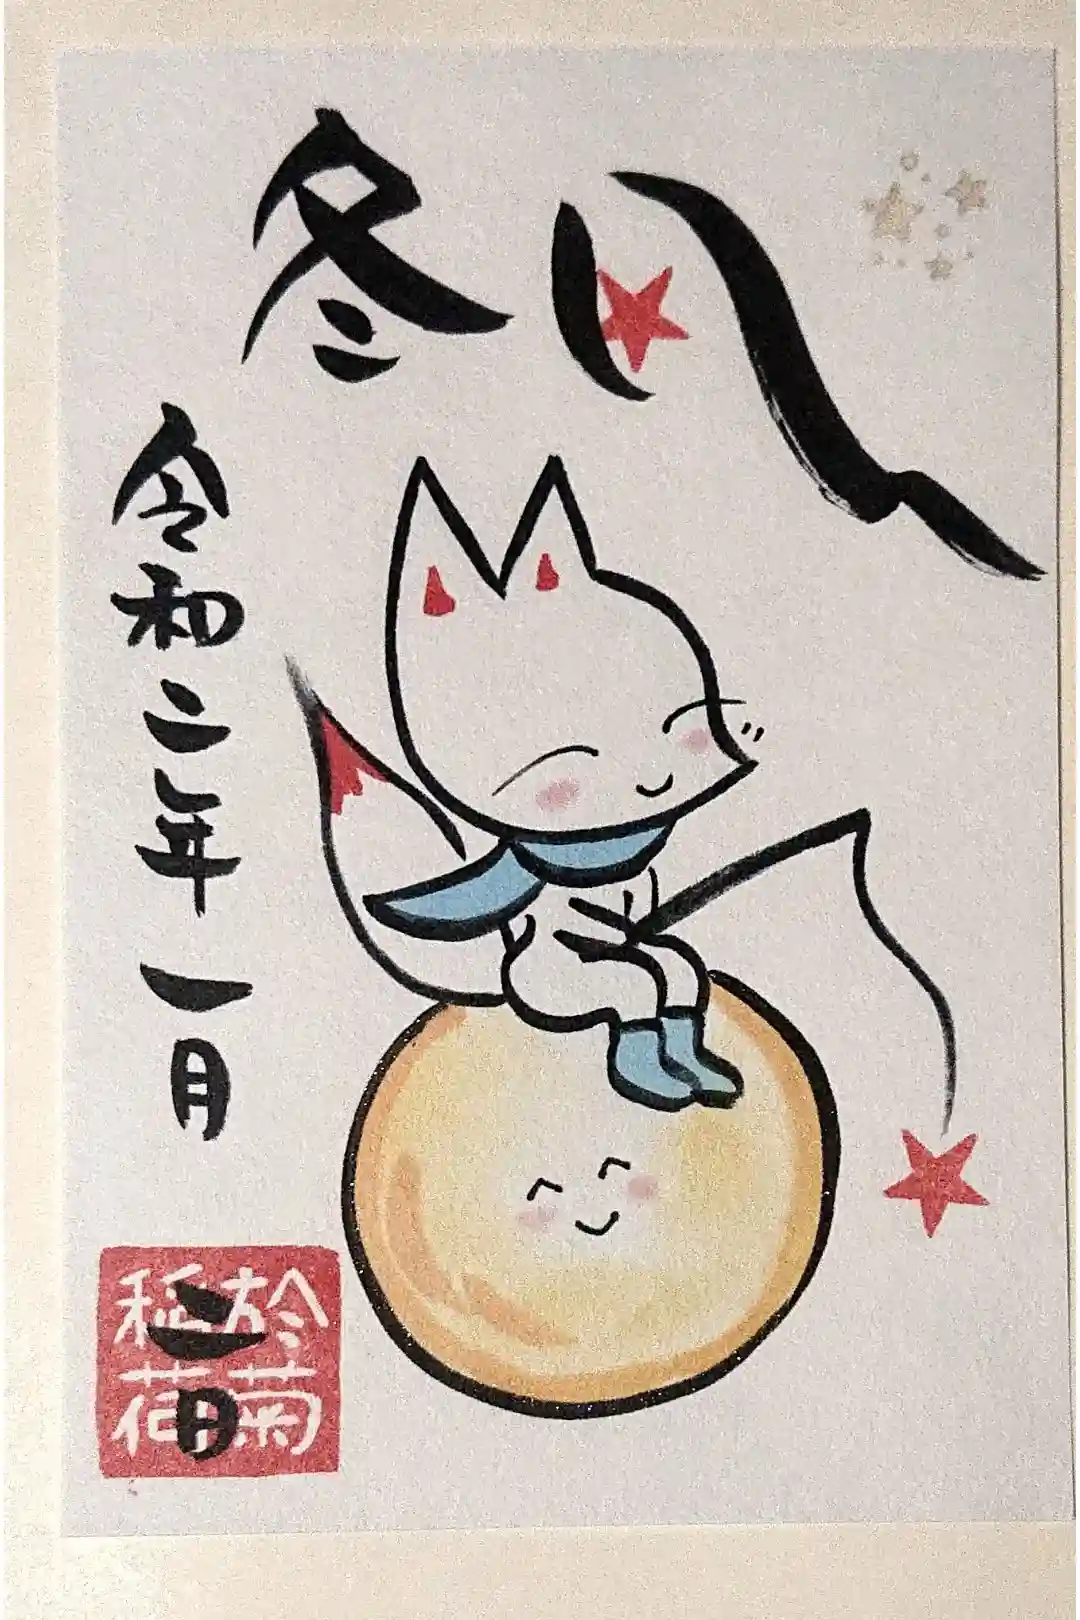 冬
令和二年一月二日
於菊
稲荷